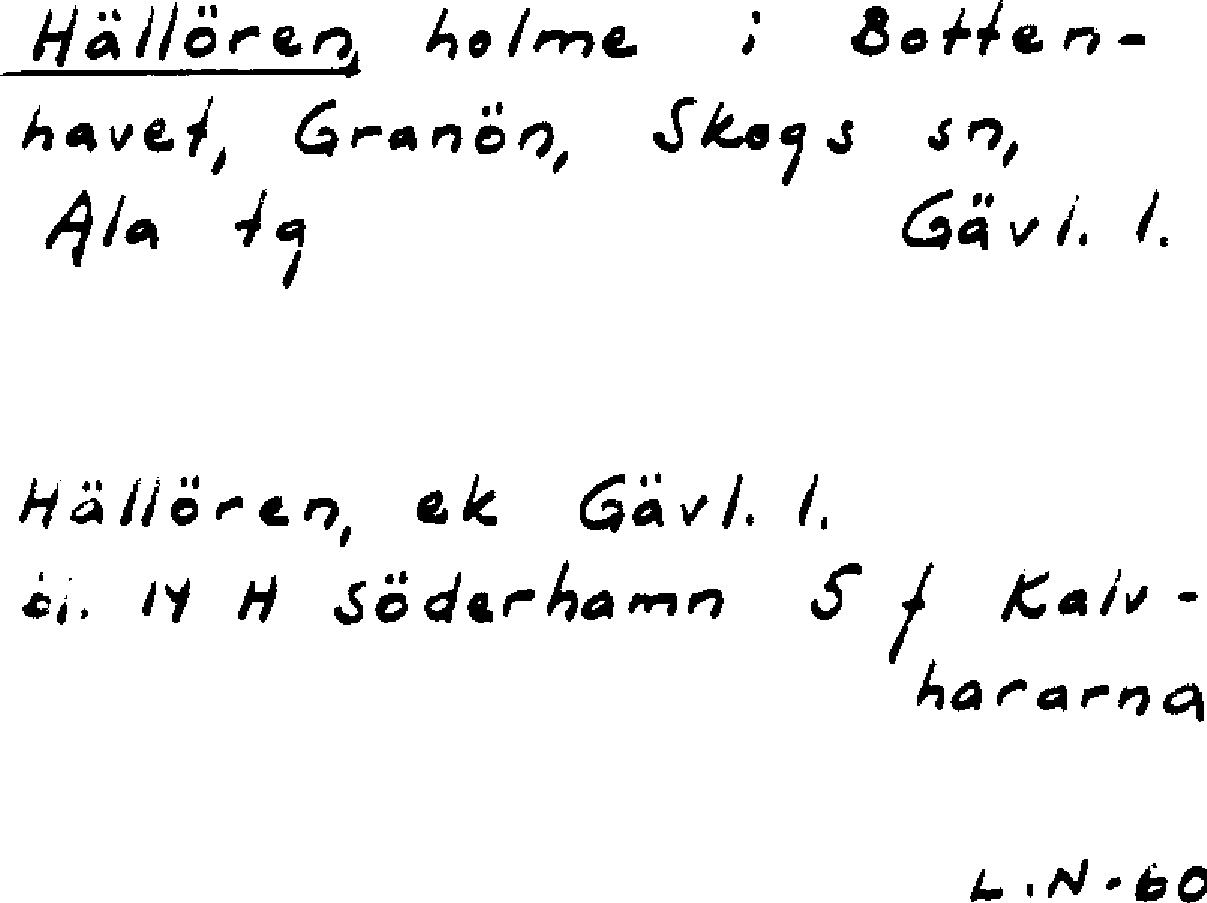 Hällören, holme i Botten-
havet, Granön, Skogs sn,
Ala tg Gävl. l.
Hällören, ek Gävl. l.
bl. 14 H Söderhamn S f Kalv-
hararna
L.N.60